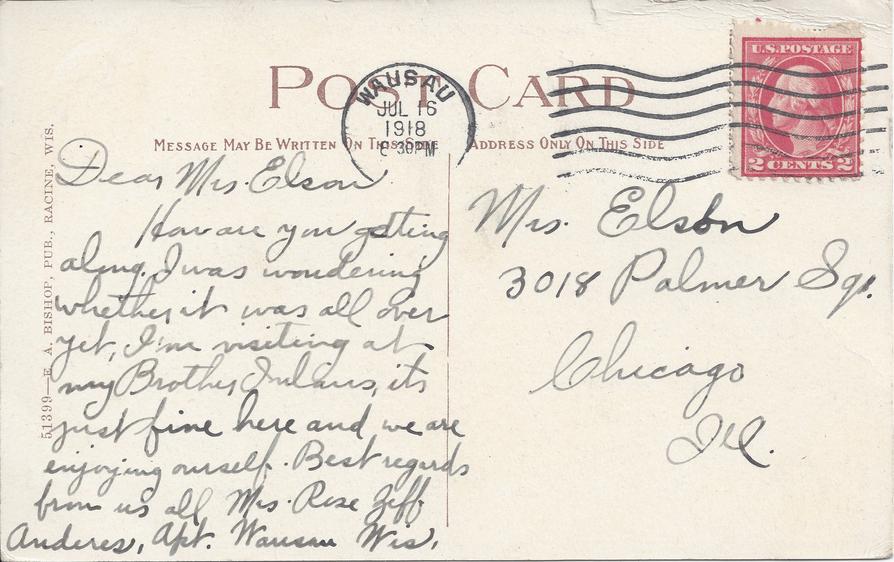 POST CARD
WAUSAU
JUL 16
1918
30PM
U.S. POSTAGE
2 CENTS 2
MESSAGE MAY BE WRITTEN ON THIS SIDE
ADDRESS ONLY ON THIS SIDE
51399—E. A. BISHOP, PUB., RACINE, WIS.
Dear Mrs. Elson
How are you getting
along, I was wondering
whether it was all over
yet, I'm visiting at
my Brother Inlaws, its
just fine here and we are
enjoying ourself. Best regards
from us all Mrs. Rose Zeff
Anderes, Apt. Wausau Wis,
Mrs. Elson
3018 Palmer Sq.
Chicago
Ill.